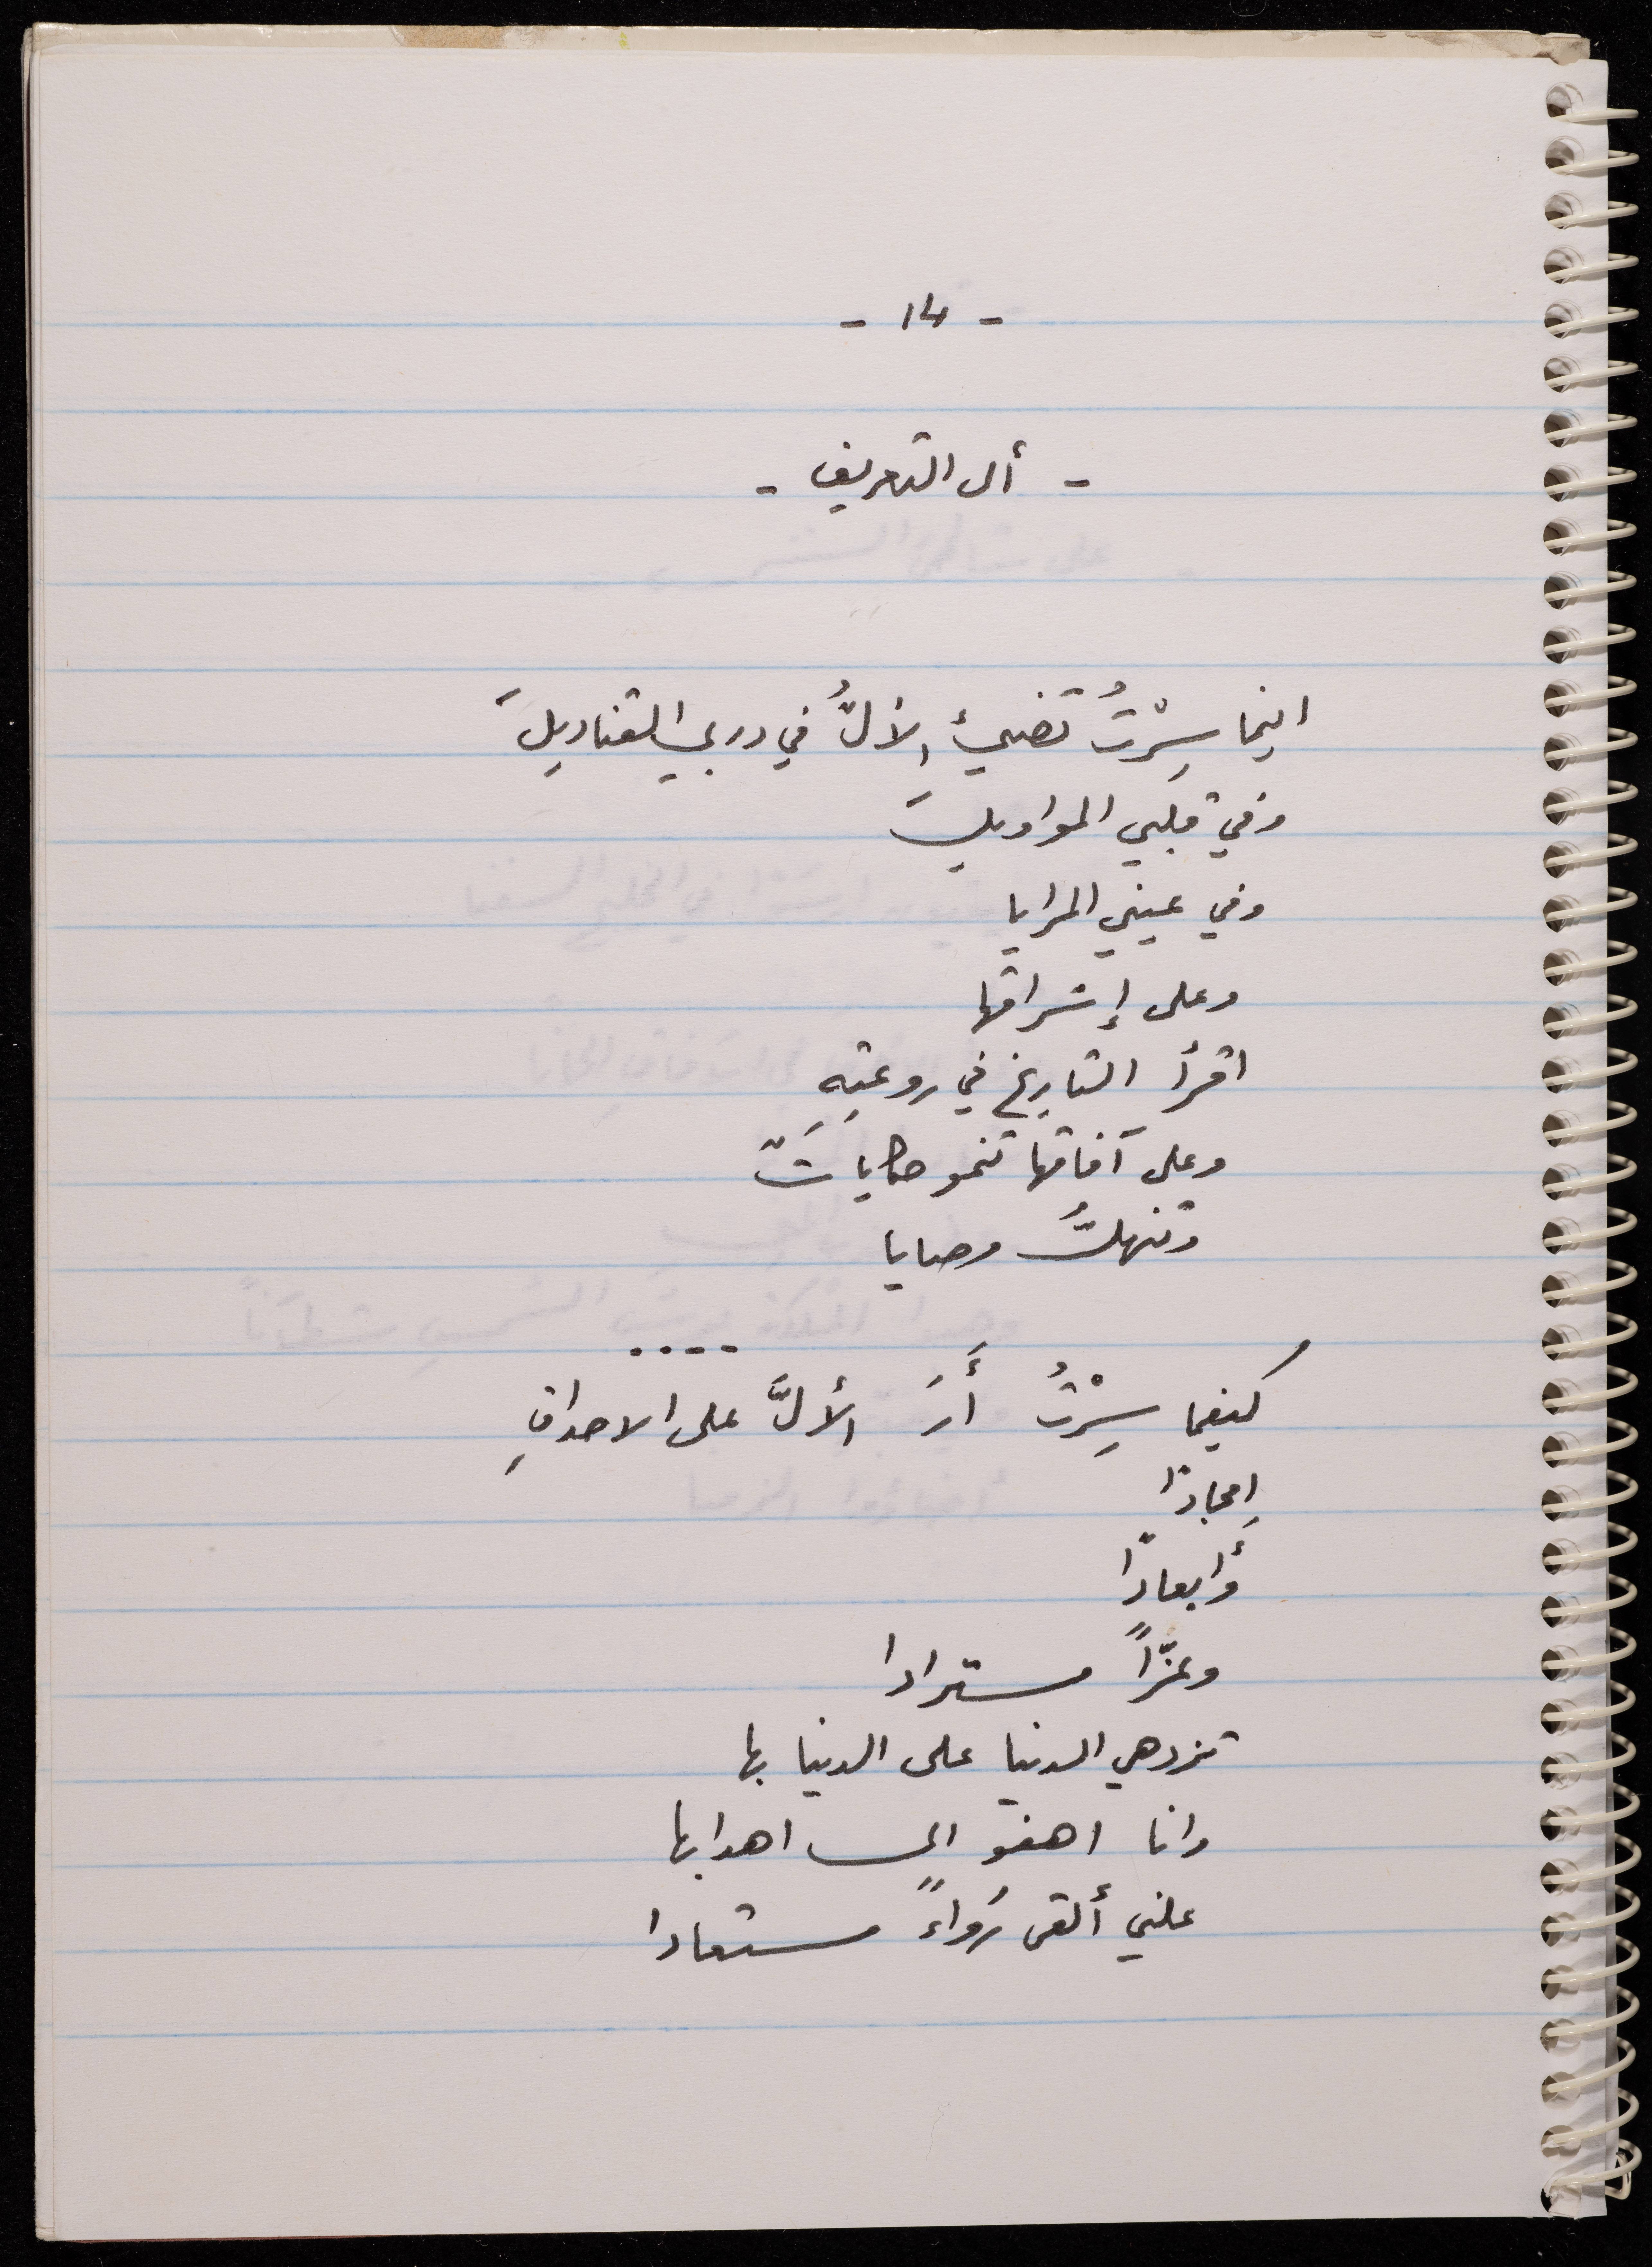 - 14 -
- أل التعريف -
اينما سِرْتُ تضيءُ الألُّ في دربي القناديلَ
وفي قلبي المواويلَ
وفي عيني المرايا
وعلى إشراقها
اقرأ التاريخ في روعتِهِ
وعلى آفاقها تنمو حكاياتٌ
وتنهلُّ وصايا
....
كيفما سِرْتُ أَرَ الألَّ على الاحداقِ
امجادًا
وأبعادًا
وعزّاً مسترادا
تزدهي الدنيا على الدنيا بها
وانا اهفو الى اهدابها
علني ألقى رُواءً مستعادا